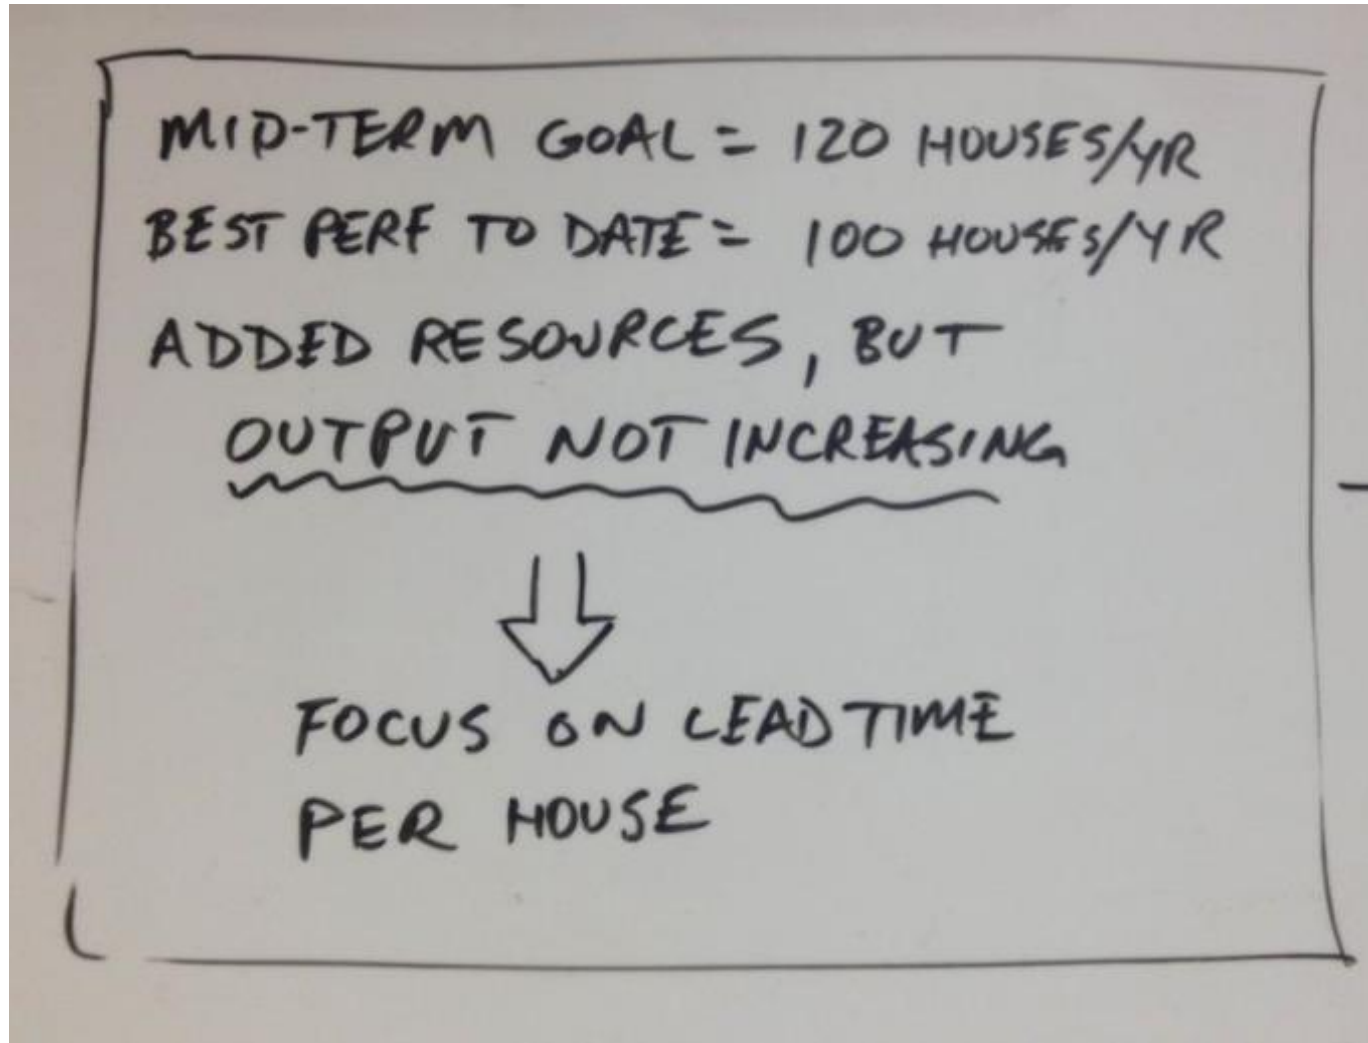 MID-TERM GOAL = 120 HOUSES/YR
BEST PERF TO DATE = 100 HOUSES/YR
ADDED RESOURCES, BUT
OUTPUT NOT INCREASING
FOCUS ON LEAD TIME
PER HOUSE